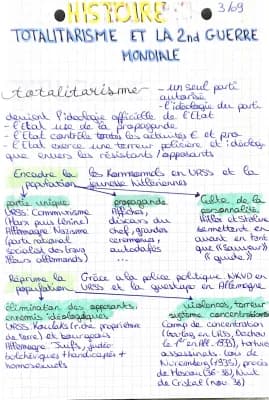 HISTOIRE
3/09
TOTALITARISME ET LA 2nd GUERRE
MONDIALE
totalitarisme
- un seul parti
autorisé
- l'idéologie du parti
devient l'idéologie officielle de l'Etat
- l'Etat use de la propagande
- l'Etat contrôle toutes les activités € et pro
- l'Etat exerce une terreur policière et idéolog
que envers les résistants / opposants
Encadre la population
les Komsomols en URSS et la
jeunesse hitlériennes
parti unique
URSS: Communisme
(Marx puis Lénine)
Allemagne: Nazisme
(parti national
socialist des trav
lleurs allemands)
propagande
Affiches,
discours du
chef, grandes
cérémonies,
autodafés
...
Culte de la
personnalité
Hitler et Staline
se mettent en
avant en tant
que "Sauveur"
"guide"
Réprime la population
Grâce à la police politique NKVD en
URSS et la guestapo en Allemagne
élimination des opposants,
ennemis idéologiques
URSS: Koulaks (riche propriétaire
de terre) et bourgeois
Allemagne: Juifs, judéo-
bolchéviques + handicapés +
homosexuels
violences, terreur
système concentrationn
Camp de concentration
(Goulag en URSS, Dachau
le 1er en All. 1933), torture
assassinats. Lois de
Nuremberg (1935), procès
de Moscou (36-38), Nuit
de Cristal (nov 38)